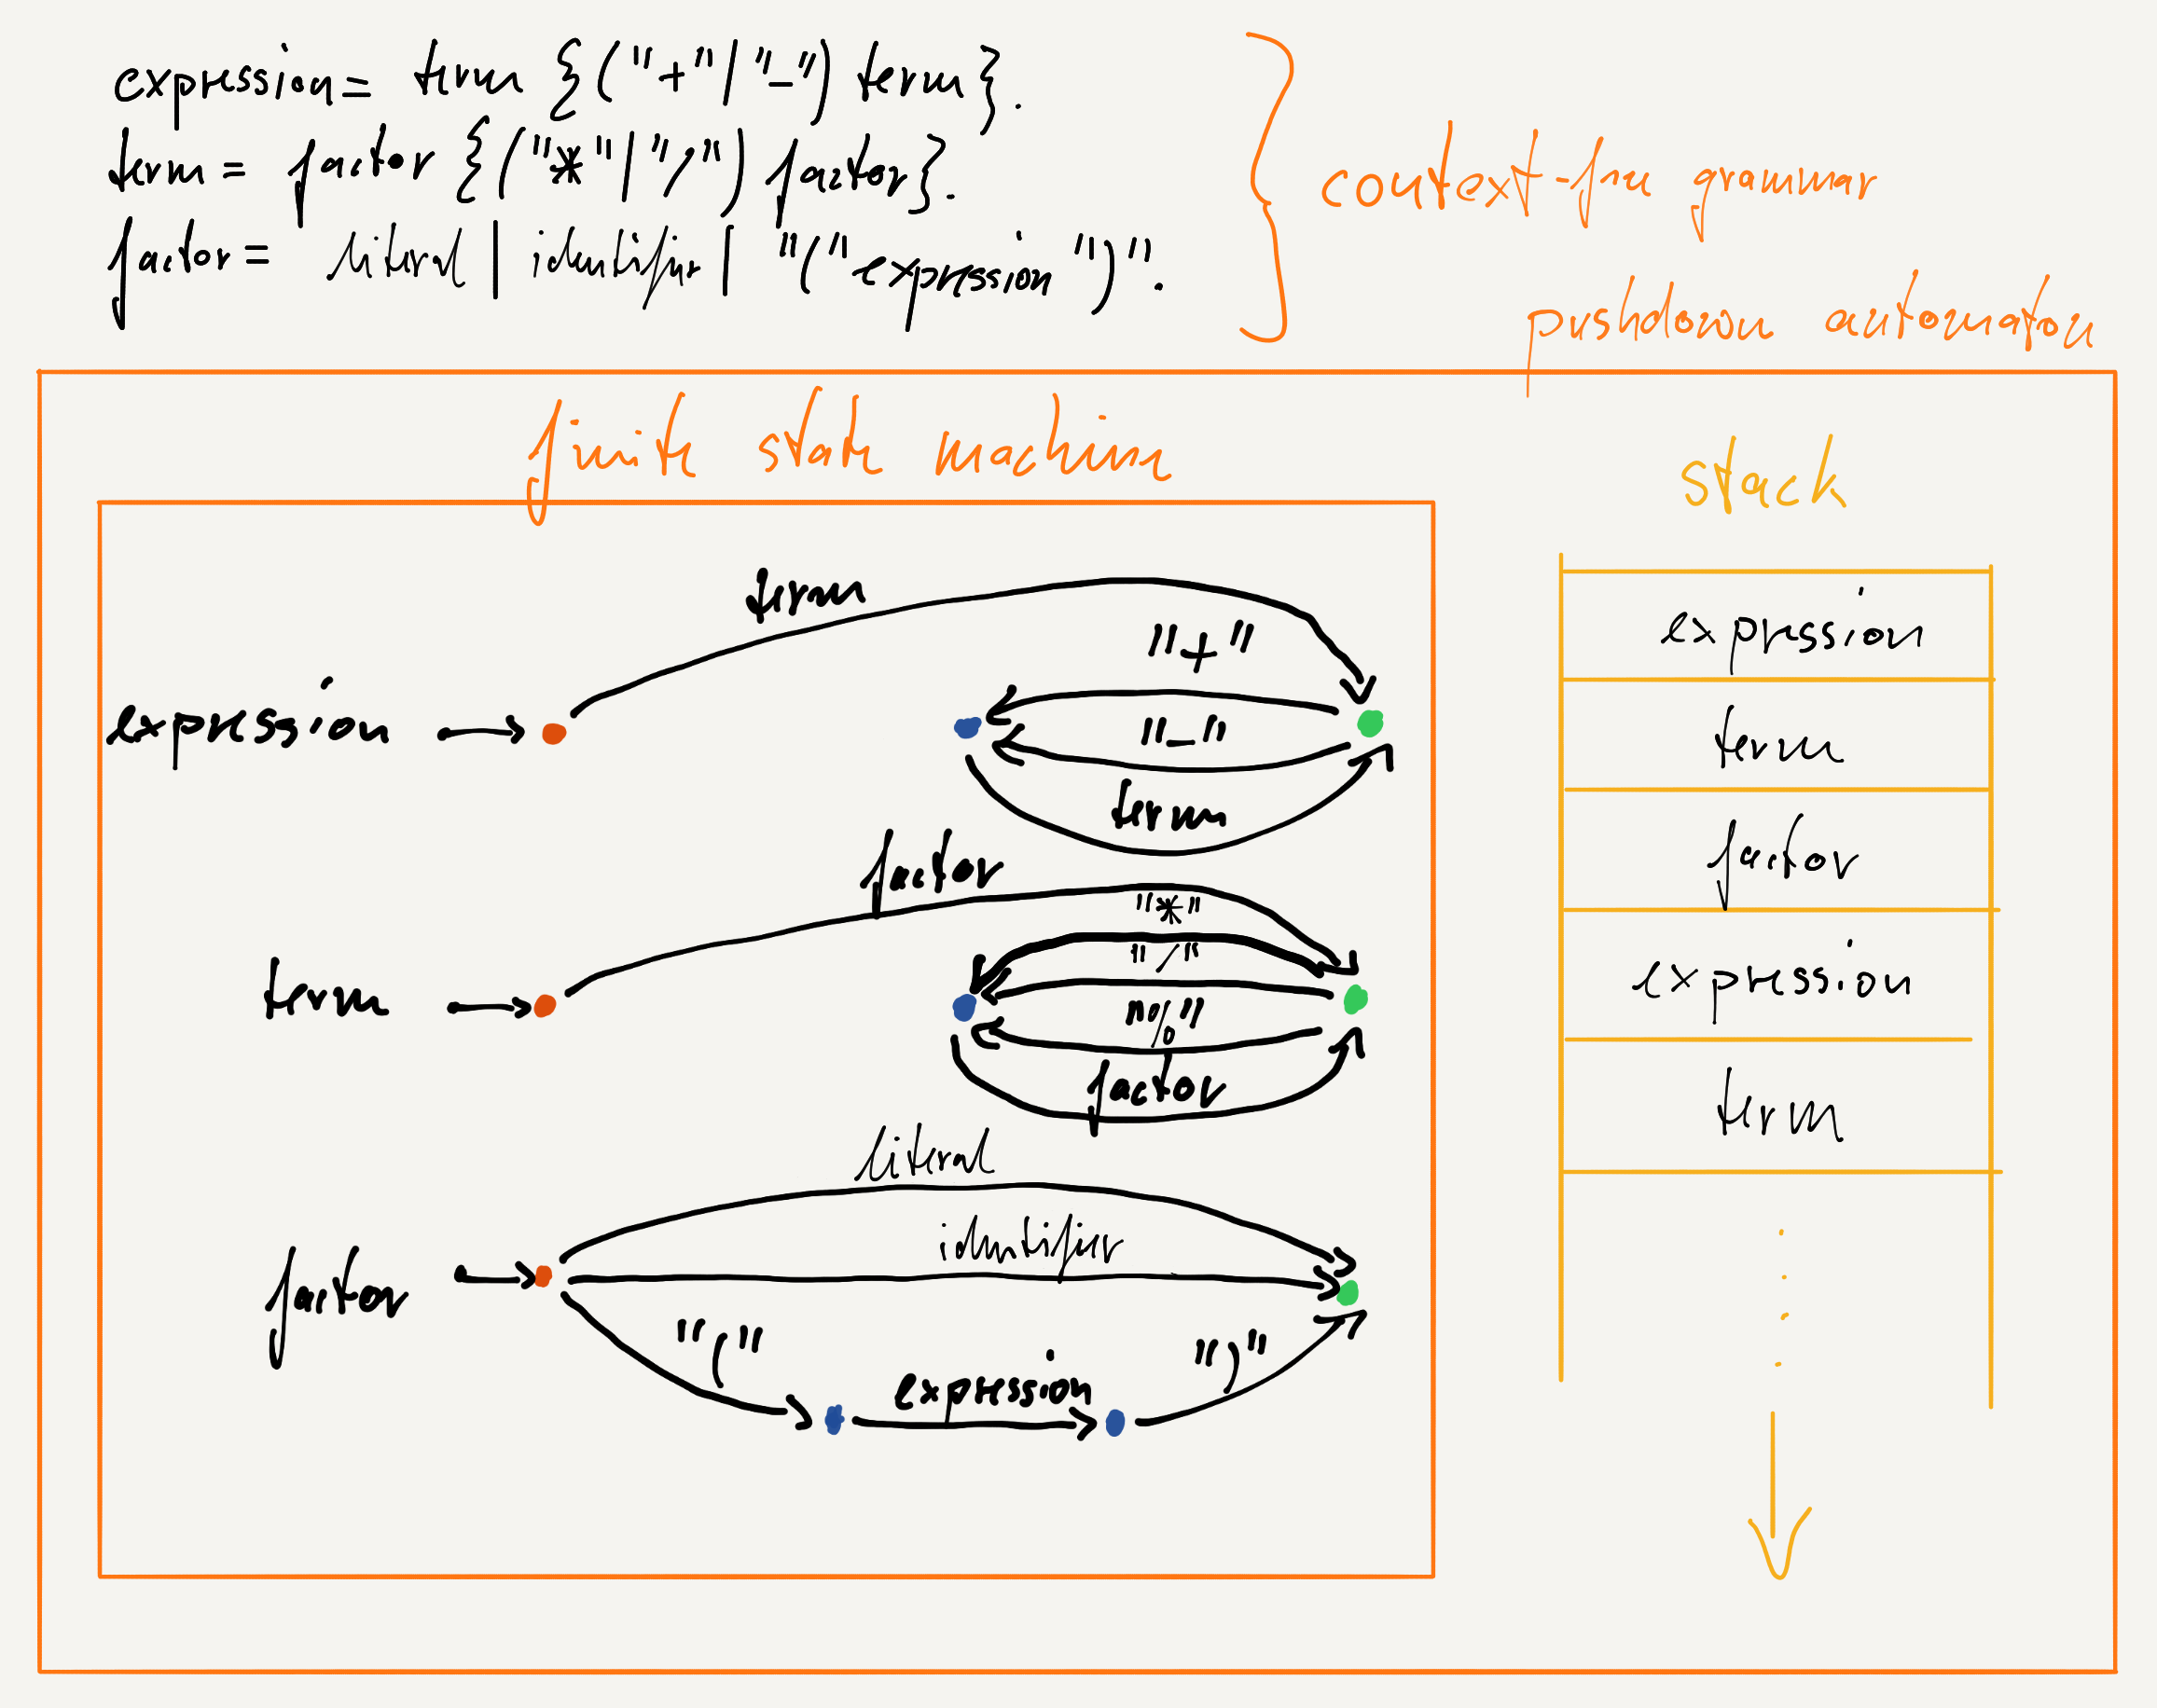 expression = term {("+" | "-") term}.
term = factor {("*" | "/") factor}.
factor = literal | identifier | "(" expression ")".
context-free grammar
pushdown automaton
finite state machine
stack
term
"+"
expression
"-"
term
factor
"*"
"/"
term
"%"
factor
literal
identifier
factor
"("
expression
")"
expression
term
factor
expression
term